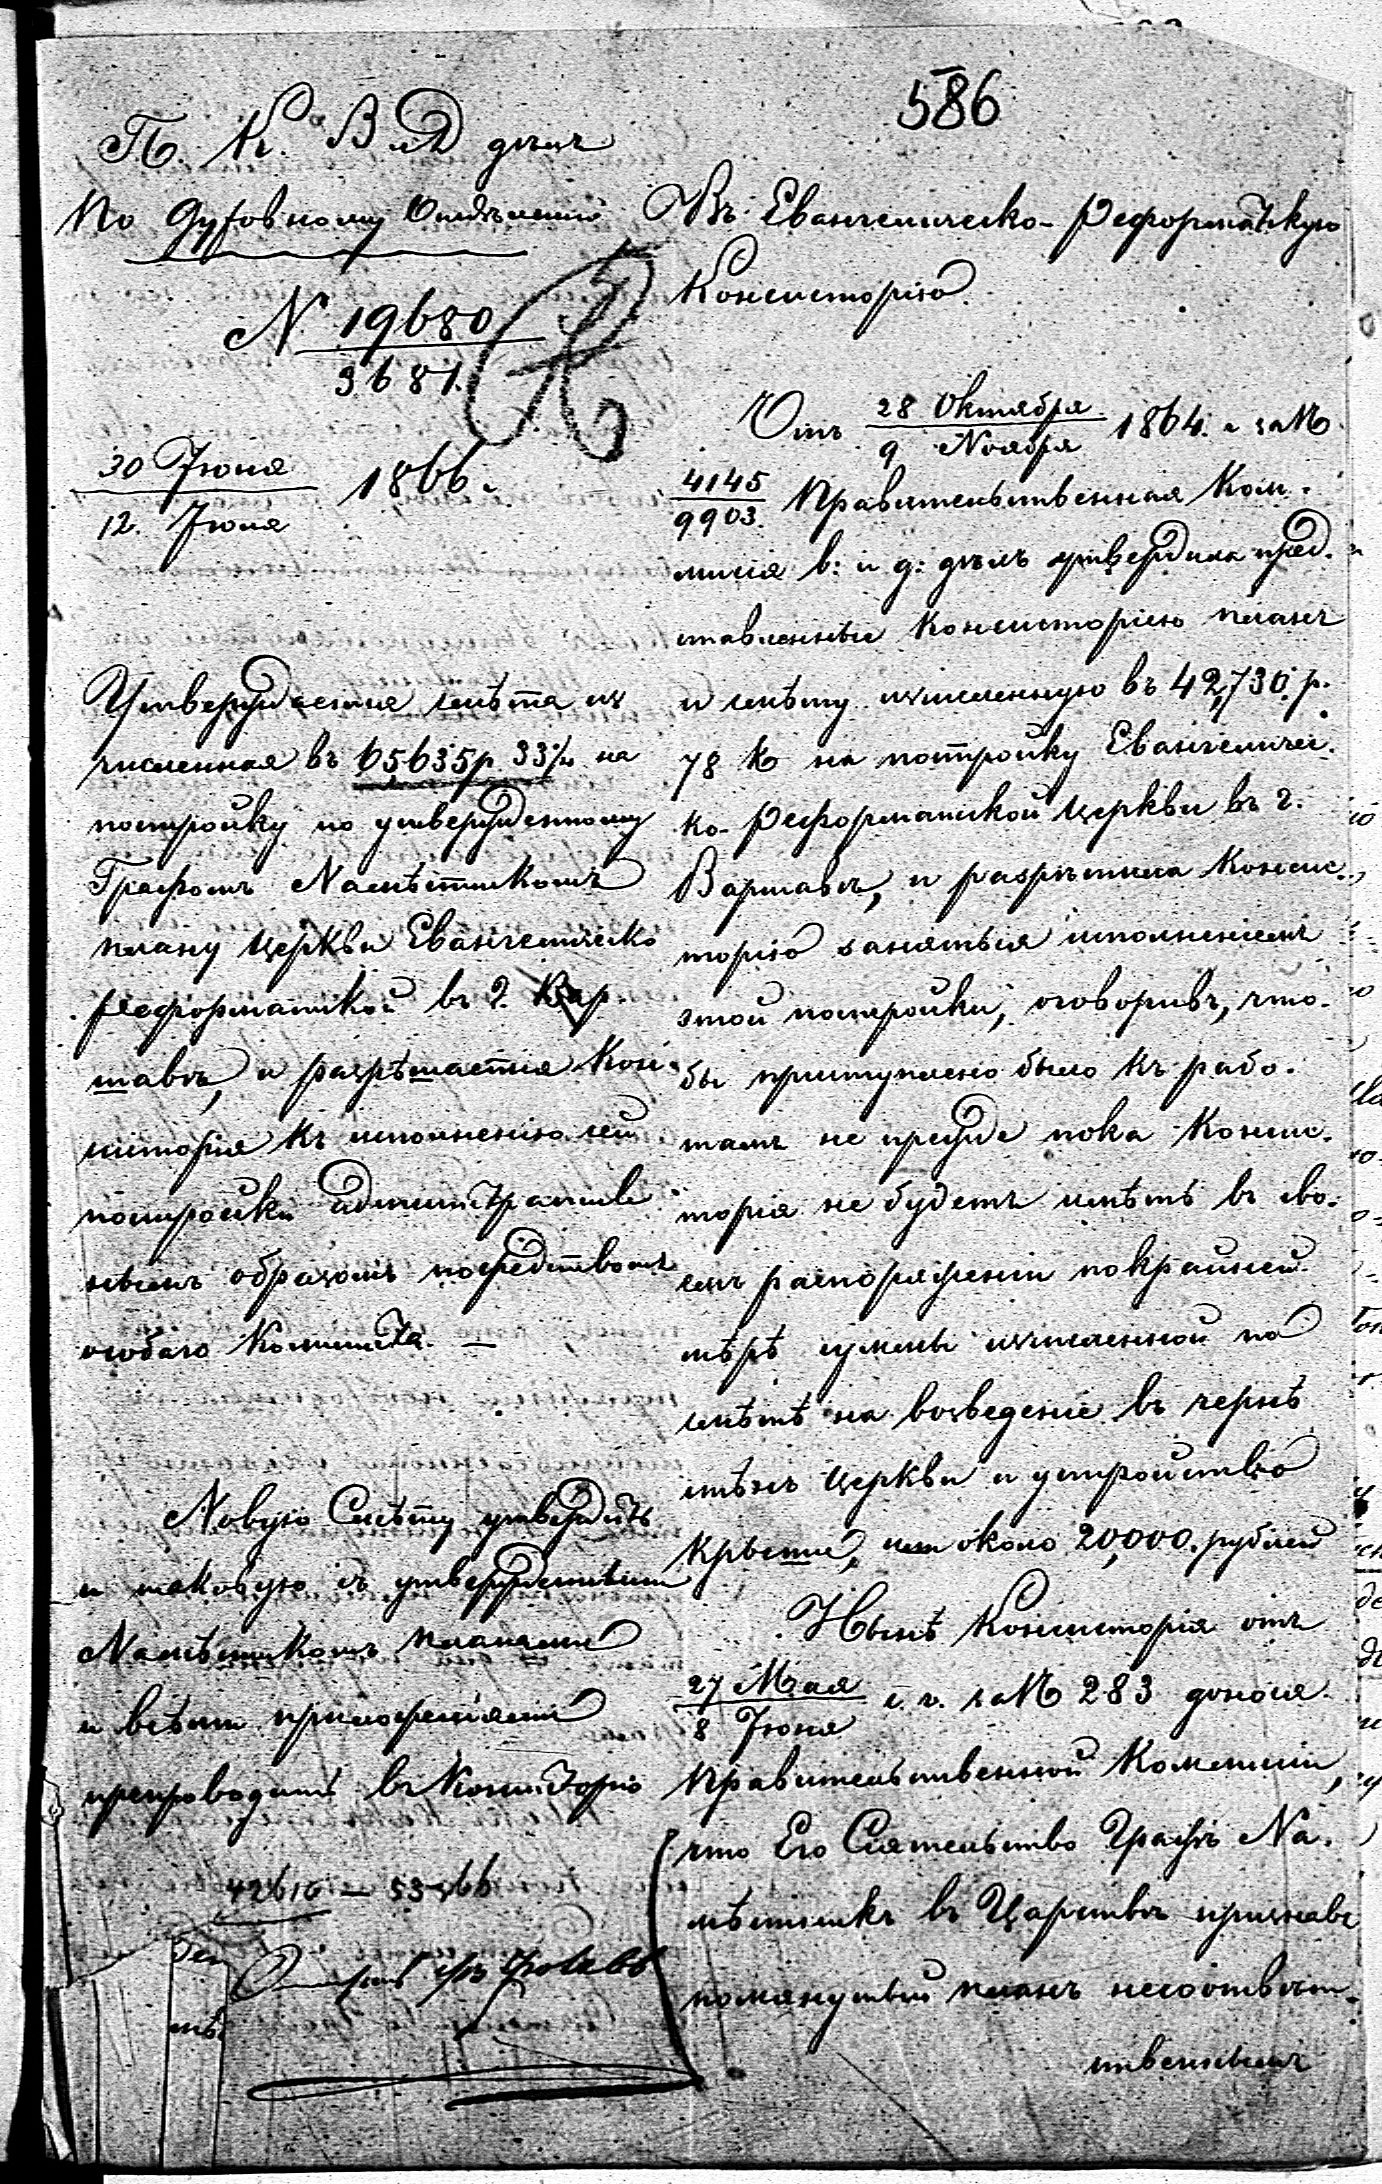 586
П. К. В и Д дѣлъ
По Духовному Отдѣленію
N 19680
3681.
30 Іюня
12. Іюля
1866.
Утверждается смѣта из
численная въ 65635 р 33½ на
постройку по утвержденному
Графомъ Намѣстникомъ
плану церкви Евангелическо
реформатской въ г. Вар.
шавѣ, и разрѣшается Кон
систорія къ исполненію сей
постройки административ
нымъ образомъ посредствомъ
особаго Комитета. —
Новую Смѣту утвердить
и таковую съ утвержденными
Намѣстникомъ планами
и всѣми приложеніями
препроводить въ Консисторію
42616 — 53
Въ Евангелическо-Реформатскую
Консисторію.
Отъ 28 Октября
9 Ноября
1864. г за №
4145
9903.
Правительственная Ком.
мисія в: и д: дѣлъ утвердила пред.
ставленные Консисторіею планъ
и смѣту изчисленную въ 42,730. р.
78 к на постройку Евангеличес.
ко-Реформатской церкви въ г.
Варшавѣ, и разрѣшила Консис.
торію заняться исполненіемъ
этой постройки, оговоривъ, что.
бы приступлено было къ рабо.
тамъ не прежде пока Консис.
торія не будетъ имѣть въ сво.
емъ распоряженіи покрайней
мѣрѣ суммы изчисленной по
смѣтѣ на возведеніе въ чернѣ
стѣнъ церкви и устройство
крыши, около 20,000. рублей
Нынѣ Консисторія отъ
27 Мая
8 Іюня
с. г. за № 283 донося
Правительственной Коммисіи,
что Его Сіятельство Графъ На.
мѣстникъ въ Царствѣ признавъ
помянутый планъ несоотвѣт.
ственнымъ